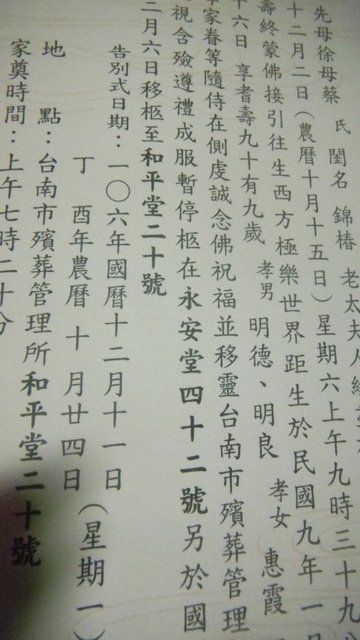 先母徐母蔡 氏 閨名 錦椿 老太夫人
十二月二日（農曆十月十五日）星期六上午九時三十九
壽終蒙佛接引往生西方極樂世界距生於民國九年一
十六日 享耆壽九十有九歲 孝男 明德、明良 孝女 惠霞
家眷等隨侍在側虔誠念佛祝福並移靈台南市殯葬管理
視含殮遵禮成服暫停柩在永安堂四十二號另於國
二月六日移柩至和平堂二十號
告別式日期：一〇六年國曆十二月十一日（星期一）
丁酉年農曆 十 月廿四日
地 點：台南市殯葬管理所和平堂二十號
家奠時間：上午七時二十分